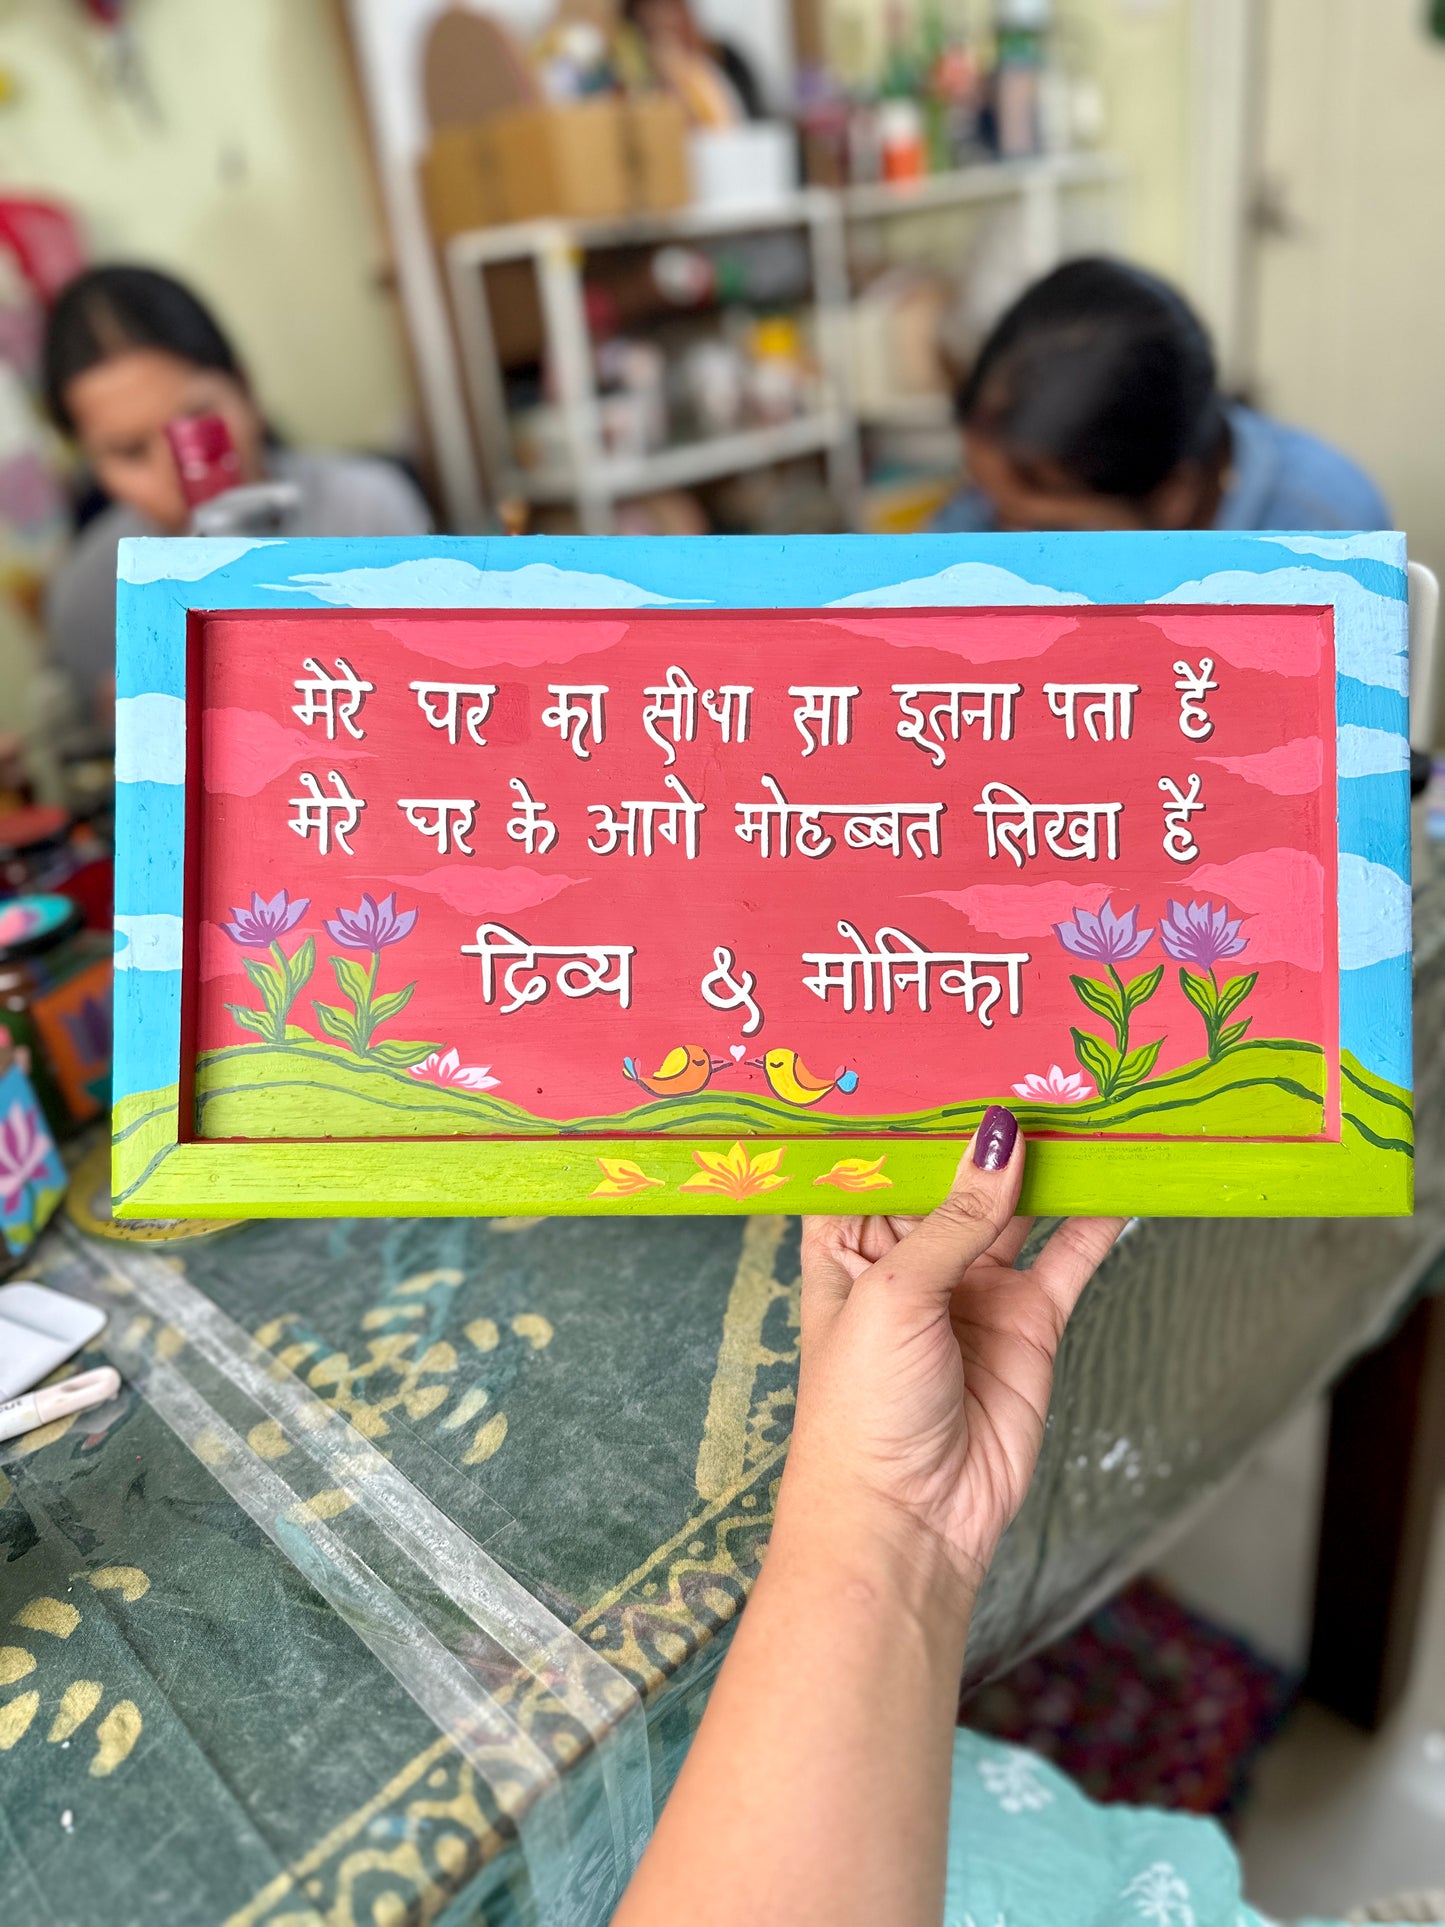 मेरे घर का सीधा सा इतना पता है
मेरे घर के आगे मोहब्बत लिखा है
द्रिव्य & मोनिका